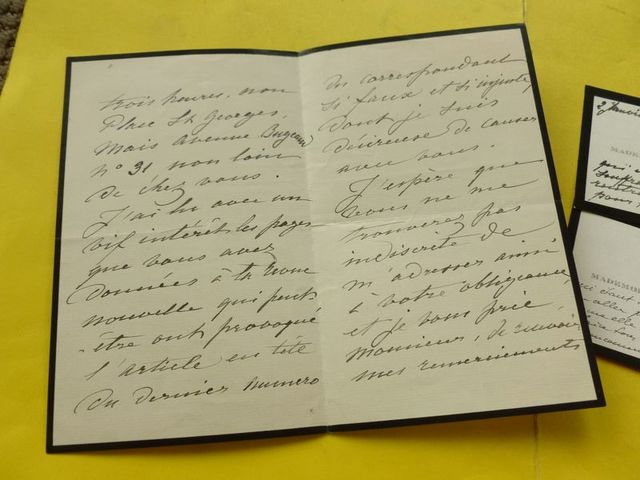 trois heures, non
Place St Georges,
Mais Avenue Bugeaud
n° 31 non loin
de chez vous.
J'ai lu avec un
vif intérêt les pages
que vous avez
données à la revue
nouvelle qui peut-
-être ont provoqué
l'article en tête
du dernier numéro
du correspondant
si faux et si injuste,
dont je suis
désireuse de causer
avec vous.
J'espère que
vous ne me
trouverez pas
indiscrète de
m'adresser ainsi
à votre obligeance
et je vous prie,
Monsieur, de recevoir
mes remerciements
MADEM
MADEMOI